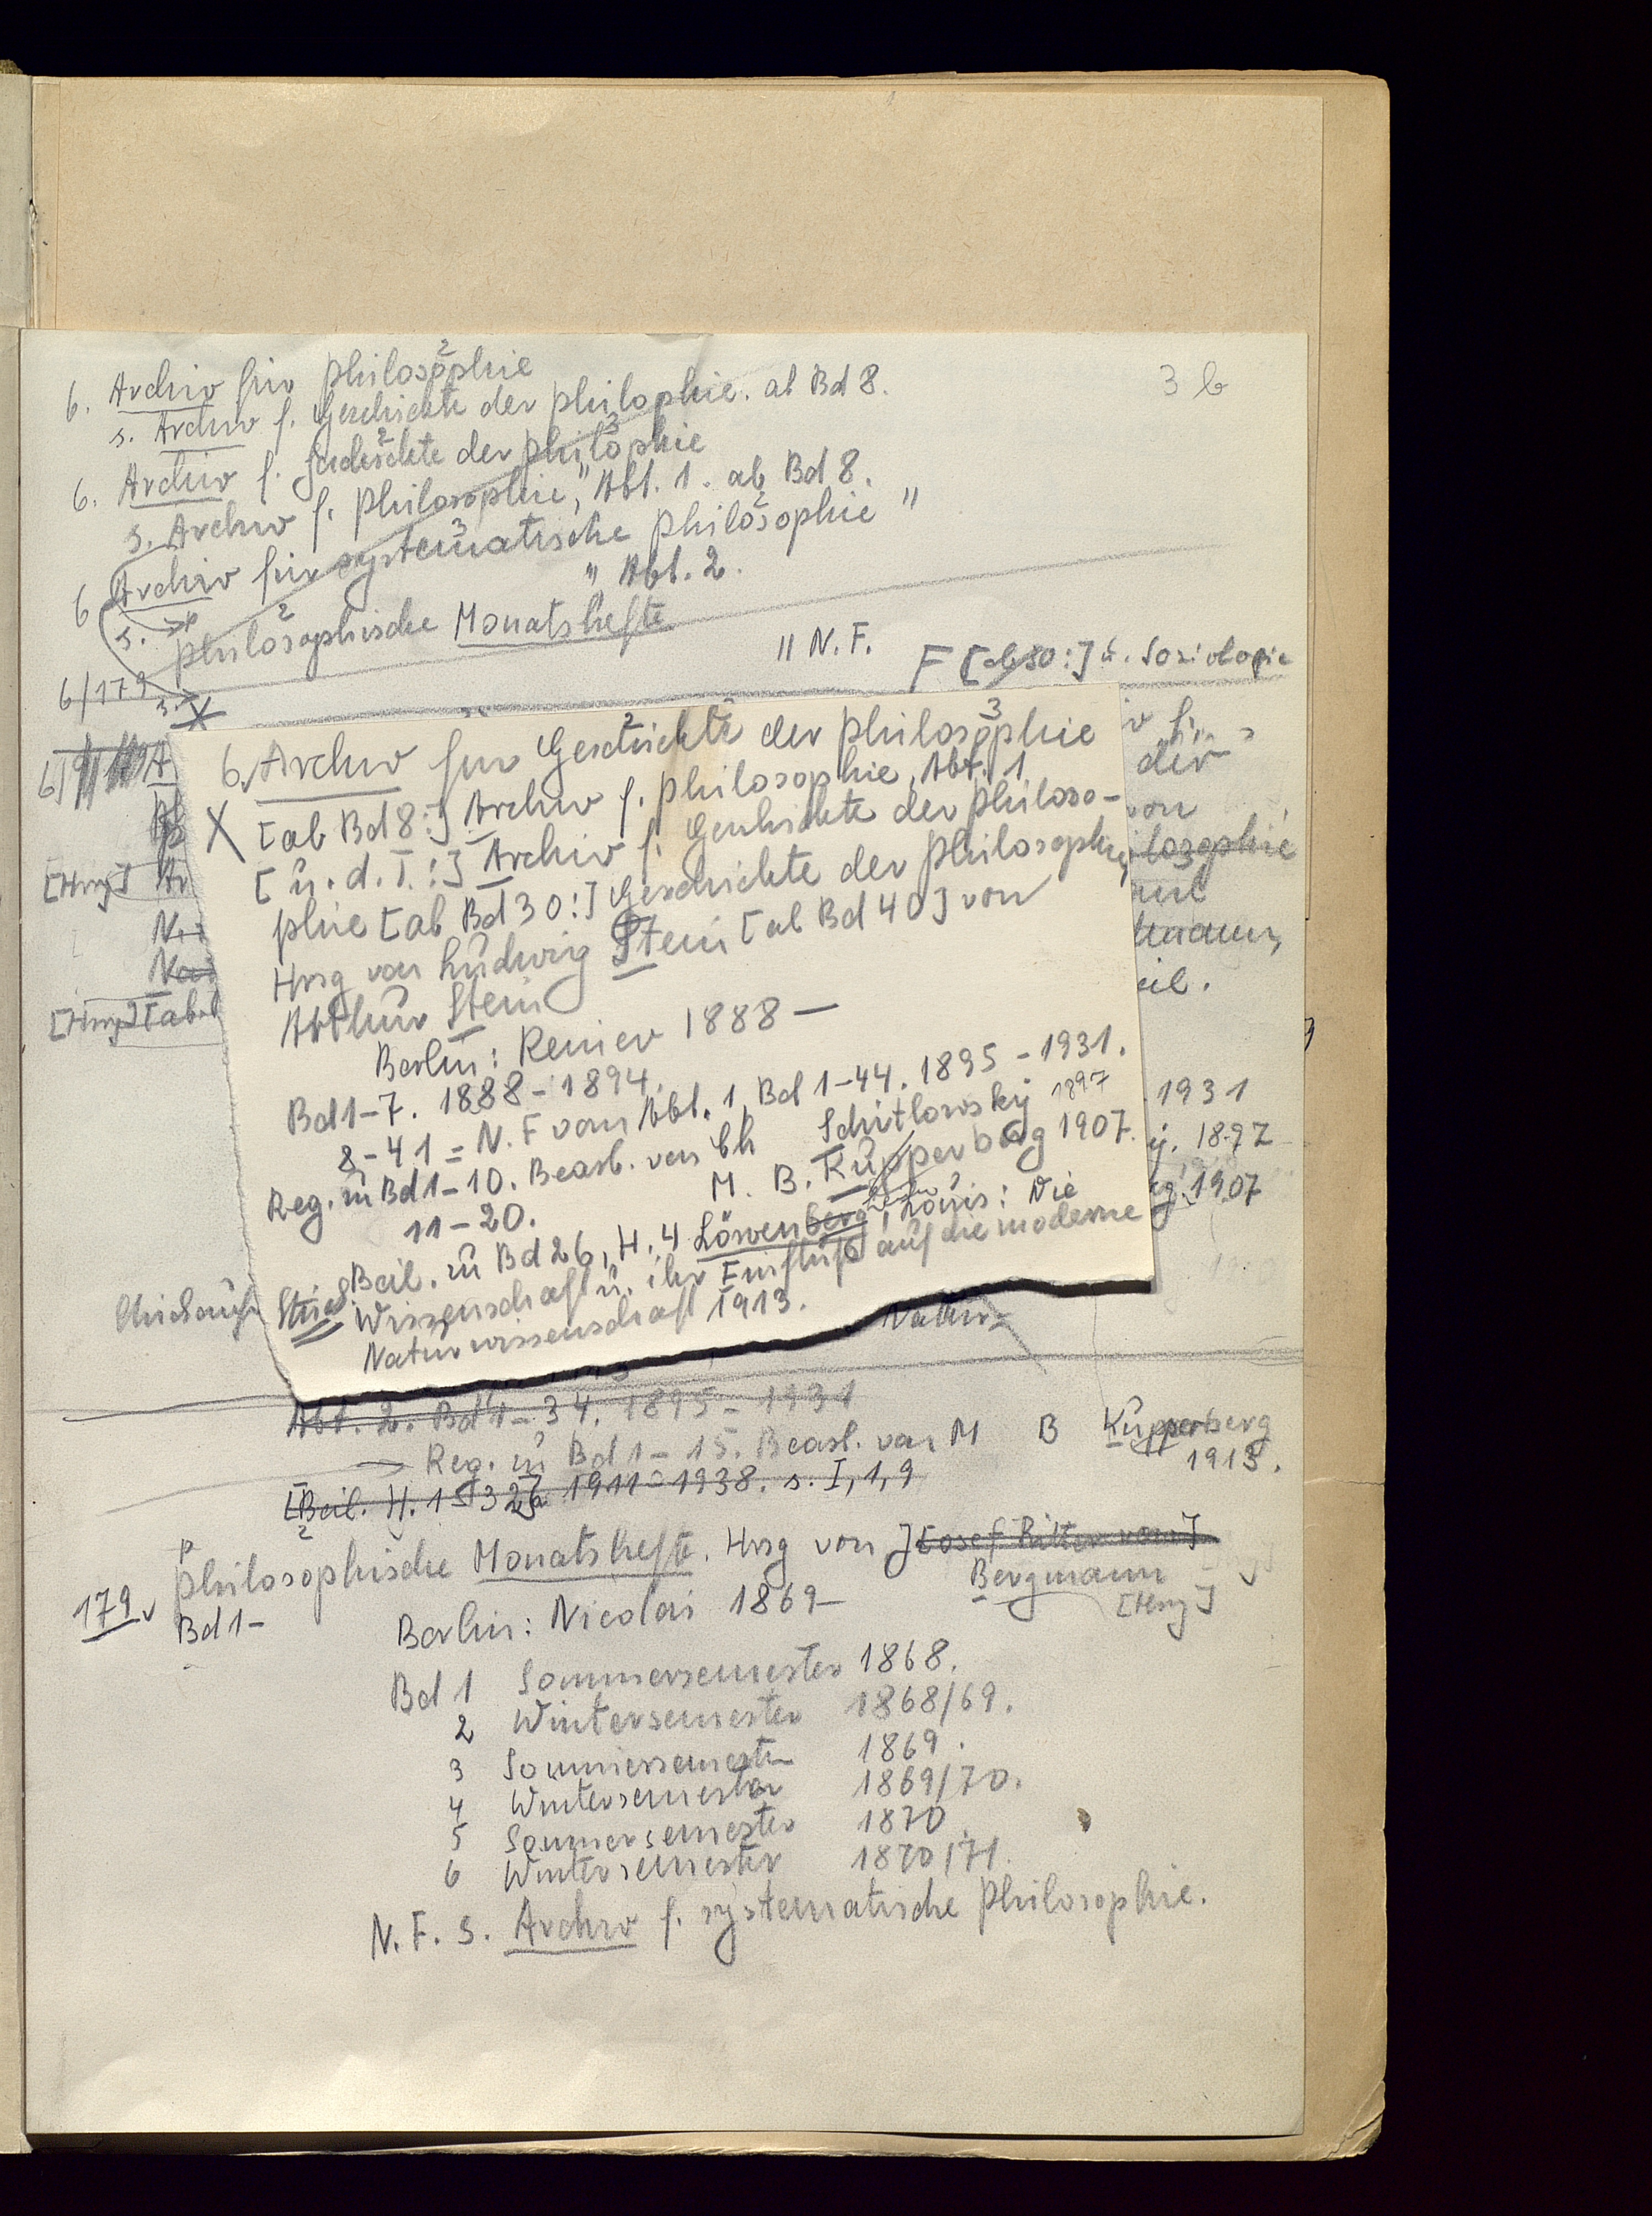 3 b
6. Archiv für Philosophie
s. Archiv f. Geschichte der Philophie. ab Bd 8.
6. Archiv f. Geschichte der Philophie
s. Archiv f. Philosophie, Abt. 1. ab Bd 8.
6 Archiv für systematische Philosophie "
s. " Abt. 2.
Philosophische Monatshefte
" N. F.
6/179
F [ab 30:] u. Soziologie
6. Archiv für Geschichte der Philosophie
X [ab Bd 8:] Archiv f. Philosophie, Abt. 1
[u. d. T.:] Archiv f. Geschichte der Philoso-
phie [ab Bd 30:] Geschichte der Philosophie
Hrsg von Ludwig Stein [ab Bd 40] von
Arthur Stein
Berlin: Reimer 1888 —
Bd 1-7. 1888-1894.
8-41 = N. F von Abt. 1 Bd 1-44. 1895-1931.
Reg. zu Bd 1-10. Bearb. von Ch Schitlowsky 1897
11-20. M. B. Kupperberg 1907.
Beil. zu Bd 26, H. 4 Löwenberg, Louis: Die
Wissenschaft u. ihr Einfluß auf die moderne
Naturwissenschaft 1913.
der
von
ilosophie
eil.
1931
1897
1907
[Hrsg]
Natur-
Abt. 2. Bd 1-34. 1895-1931
Reg. zu Bd 1-15. Bearb. von M B Kupperberg
1913.
[Beil. H. 1 1911-1938. s. I, 1, 9
179. Philosophische Monatshefte. Hrsg von J[osef Ritter von]
Bergmann
[Hrsg]
Bd 1-
Berlin: Nicolai 1869-
Bd 1 Sommersemester 1868.
2 Wintersemester 1868/69.
3 Sommersemester 1869.
4 Wintersemester 1869/70.
5 Sommersemester 1870
6 Wintersemester 1870/71.
N. F. s. Archiv f. systematische Philosophie.